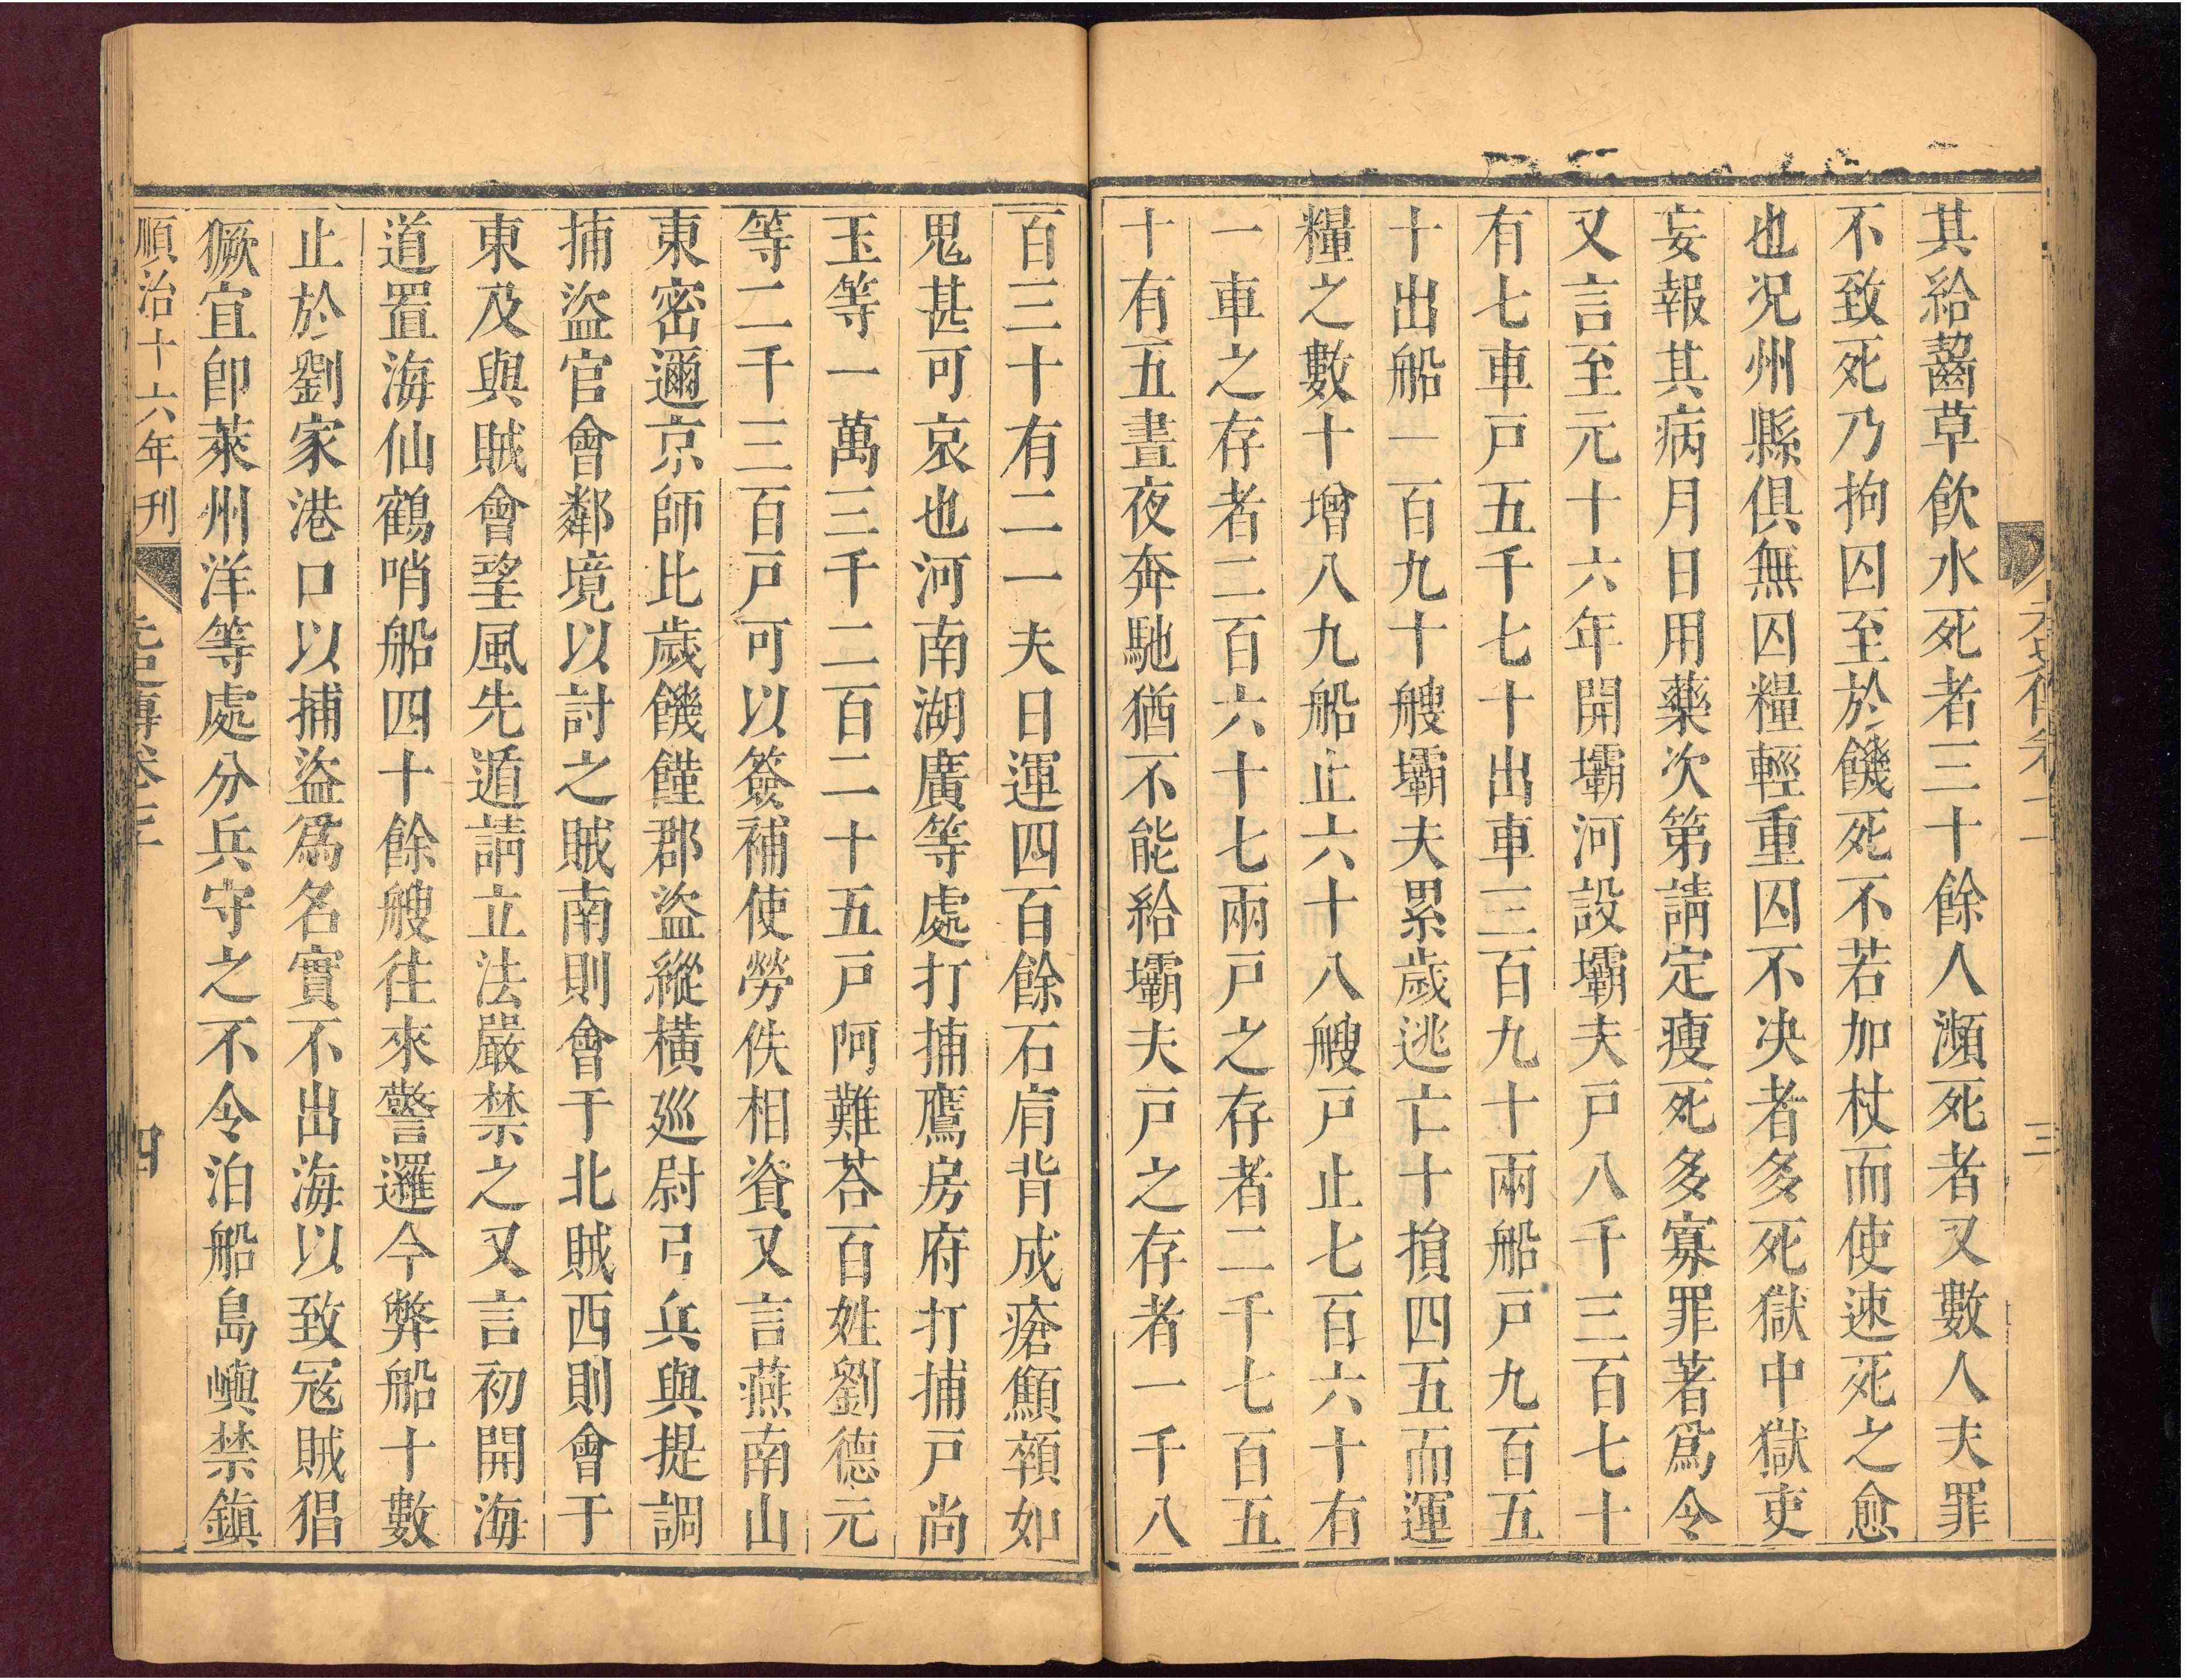 其給齧草飲水死者三十餘人瀕死者又數人夫罪
不致死乃拘囚至於饑死不若加杖而使速死之愈
也況州縣俱無囚糧輕重囚不決者多死獄中獄吏
妄報其病月日用藥次第請定瘦死多寡罪著爲令
又言至元十六年開壩河設壩夫戸八千三百七十
有七車戸五千七十出車三百九十兩船戸九百五
十出船一百九十艘壩夫累歲逃亡十損四五而運
糧之數十增八九船止六十八艘戸止七百六十有
一車之存者二百六十七兩戸之存者二千七百五
十有五晝夜奔馳猶不能給壩夫戸之存者一千八
百三十有二一夫日運四百餘石肩背成瘡顦顇如
鬼甚可哀也河南湖廣等處打捕鷹房府打捕戸尚
玉等一萬三千二百二十五戸阿難荅百姓劉德元
等二千三百戸可以簽補使勞佚相資又言燕南山
東密邇京師比歲饑饉郡盜縱橫巡尉弓兵與提調
捕盜官會鄰境以討之賊南則會于北賊西則會于
東及與賊會望風先遁請立法嚴禁之又言初開海
道置海仙鶴哨船四十餘艘往來警邏今弊船十數
止於劉家港口以捕盜爲名實不出海以致冦賊猖
獗宜卽萊州洋等處分兵守之不令泊船島嶼禁鎮
順治十六年刊
四